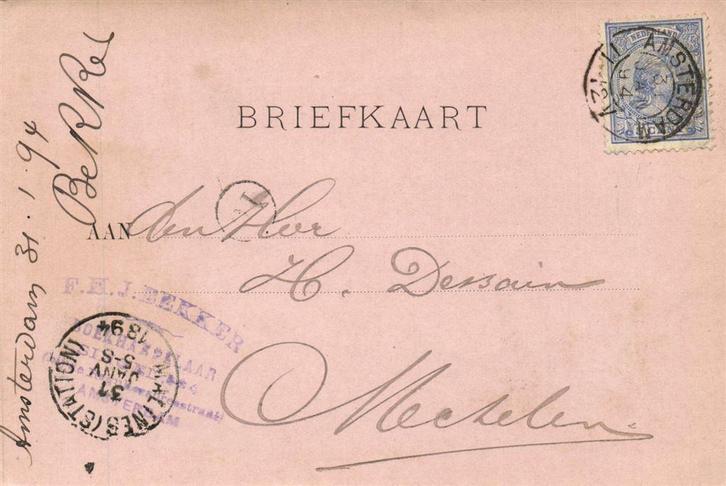 NEDERLAND
AMSTERDAM
BRIEFKAART
AAN den Heer
H. Dessain
Mechelen
Amsterdam 31.1.94
BeKKer
F.H.J. BEKKER
BOEKHANDELAAR
AMSTERDAM
MALINES (STATION)
31
JANV
5-S
1894